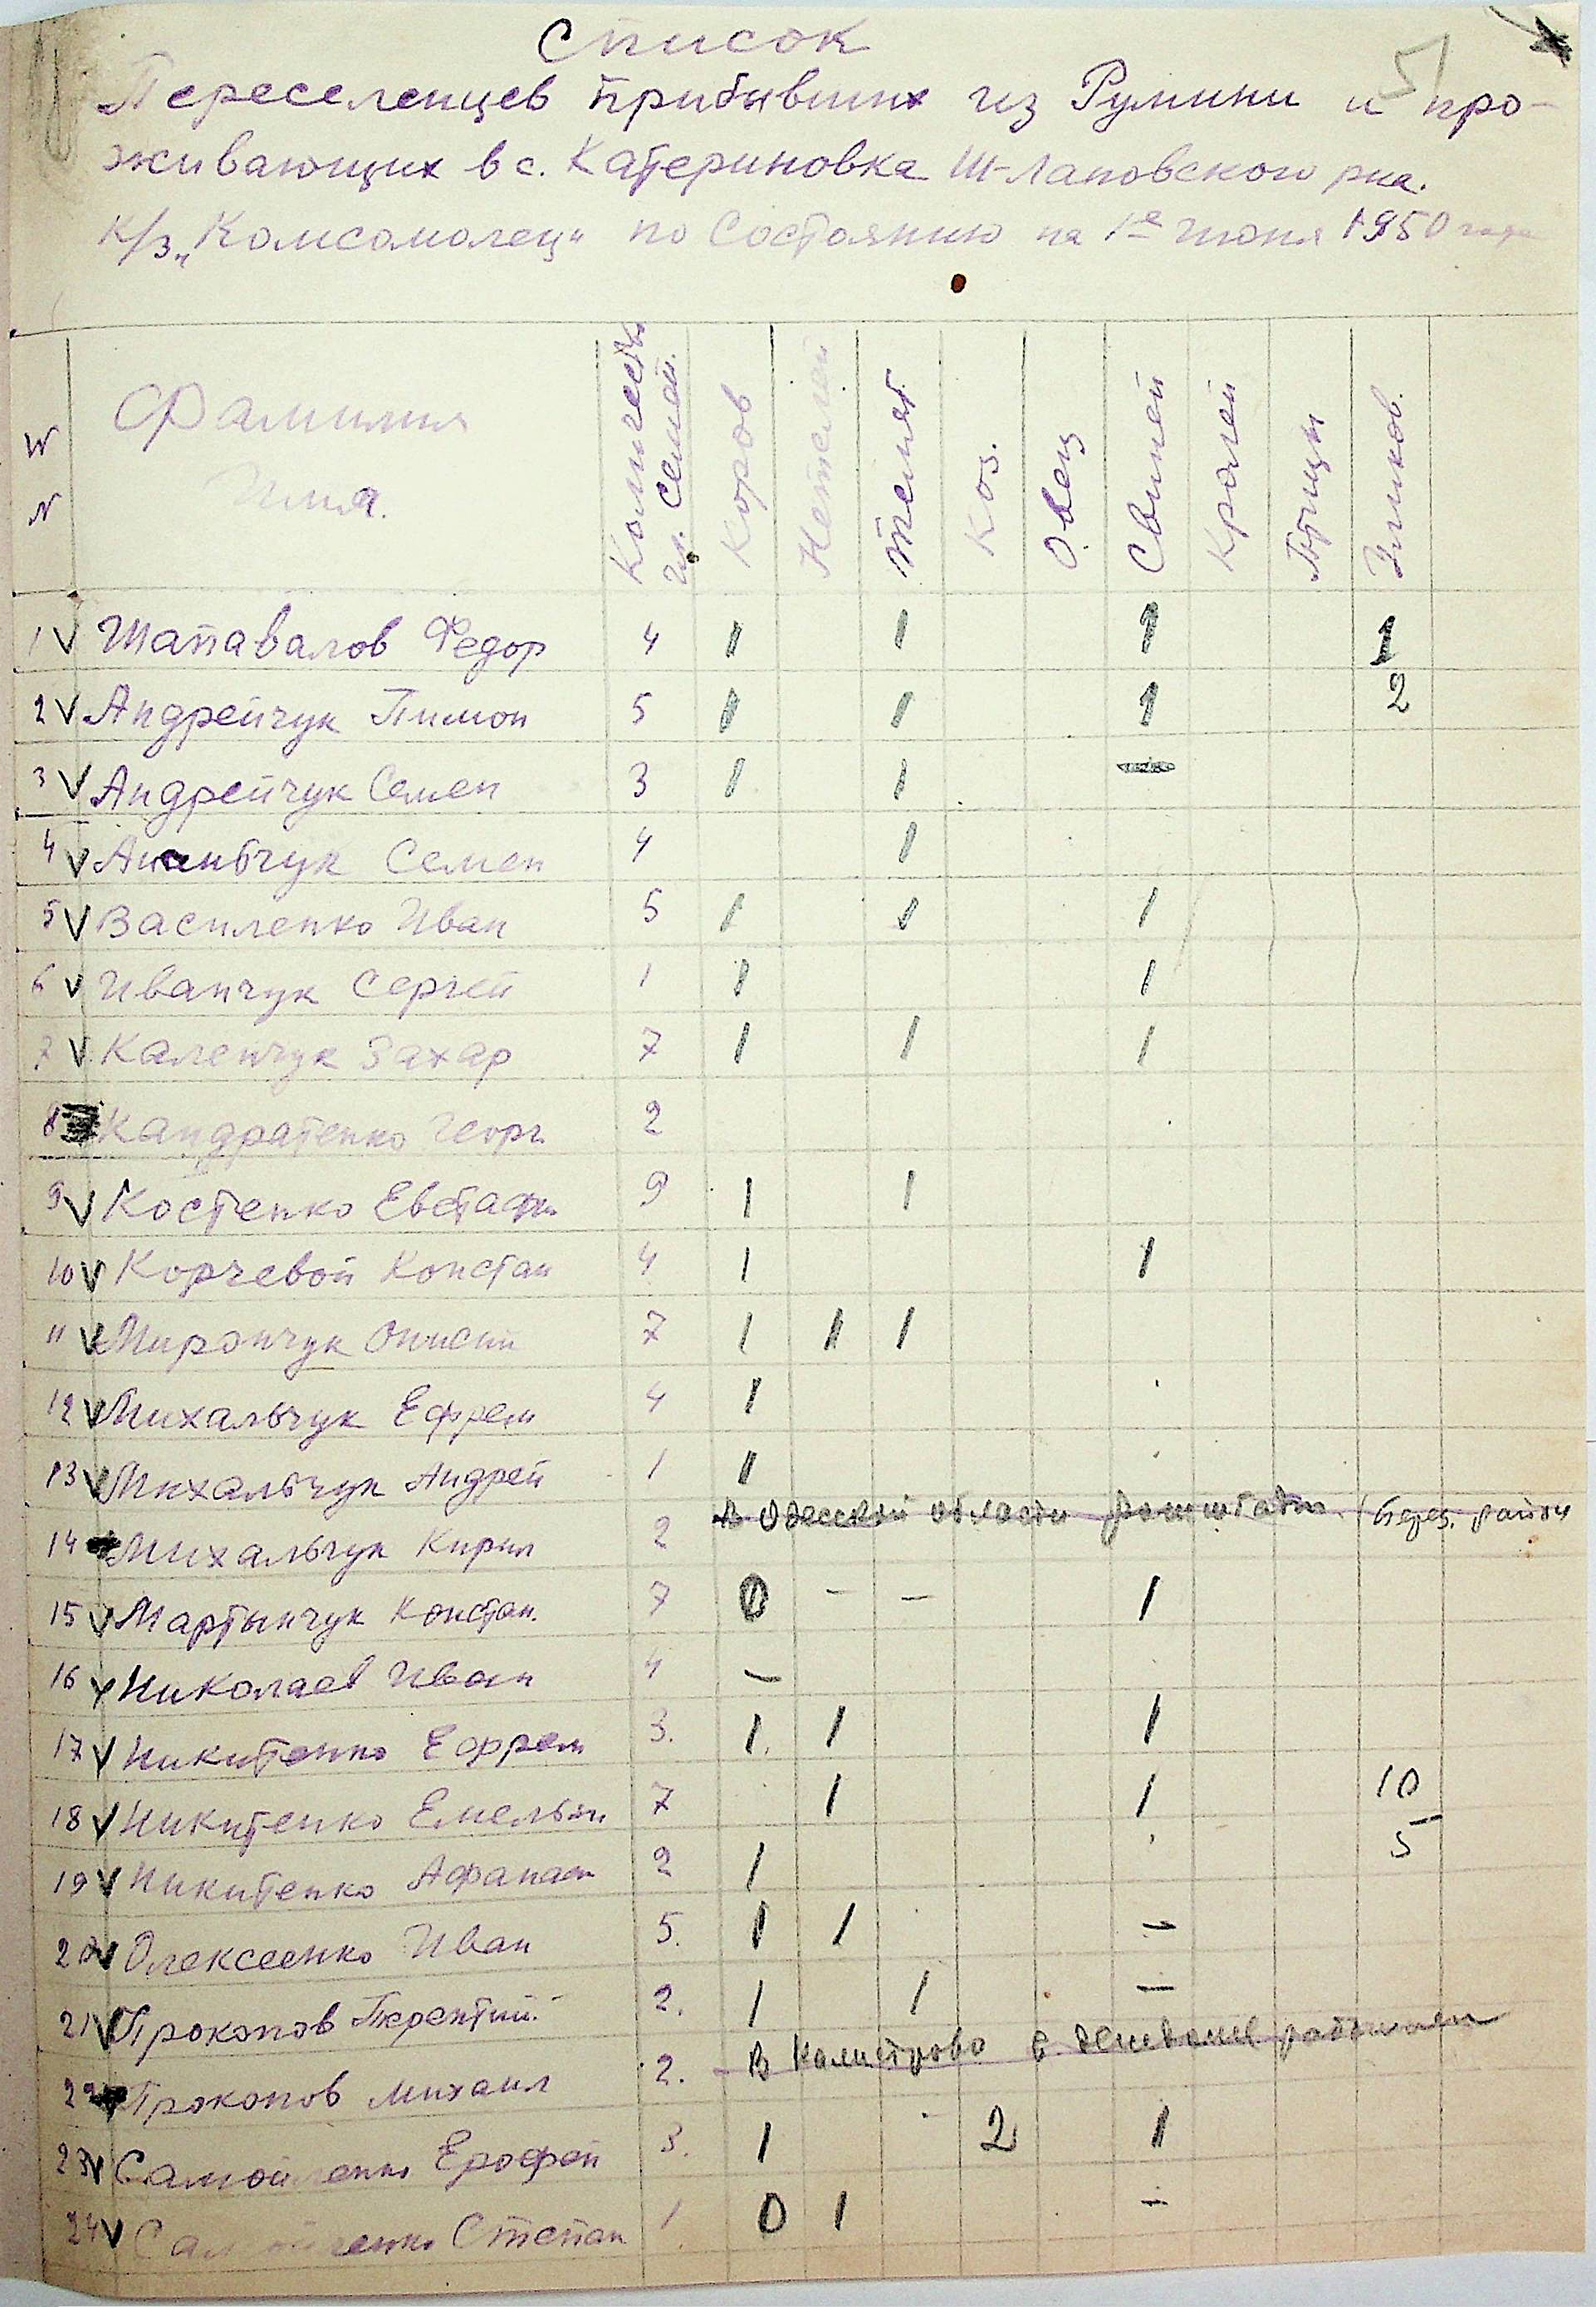 Список
Переселенцев прибывших из Румыни и про-
живающих в с. Катериновка Ш-Лановского р-на.
К/з „Комсомолец“ по состоянию на 1е июня 1950 года
N N Фамилия Имя. Количество чл. семей. Коров Нетелей Телят. Коз. Овец Свиней Кролей Птицы Уликов.
1 V Шапавалов Федор 4 1 1 1 1
2 V Андрейчук Пимон 5 1 1 1 2
3 V Андрейчук Семен 3 1 1 —
4 V Семен 4 1
5 V Василенко Иван 5 1 1 1
6 V Иванчук Сергей 1 1 1
7 V Каленчук Захар 7 1 1 1
8 Кандратенко Георг. 2
9 V Костенко Евстафи 9 1 1
10 V Корчевой Констан 4 1 1
11 V Мирончук 7 1 1 1
12 V Михальчук Ефрем 4 1
13 V Михальчук Андрей 1 1
14 Михальчук Кирил 2 В Одесской области Берез. район
15 V Мартынчук Констан. 7 0 – – 1
16 V Николаев Иван 4 –
17 V Никитенко Ефрем 3. 1. 1 1
18 V Никитенко Емельян 7 1 1 10
19 V Никитенко Афанаси 2 1 5
20 V Олексеенко Иван 5. 1 1 –
21 V Прокопов Терентий. 2. 1 1 –
22 Прокопов Михаил 2. – В
23 V Самойленко Ерофей 3. 1 2 1
24 V Самойленко Степан 1 0 1 –